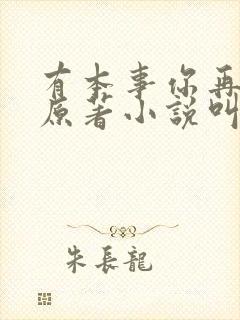 有本事你再
原著小說叫
朱長龍